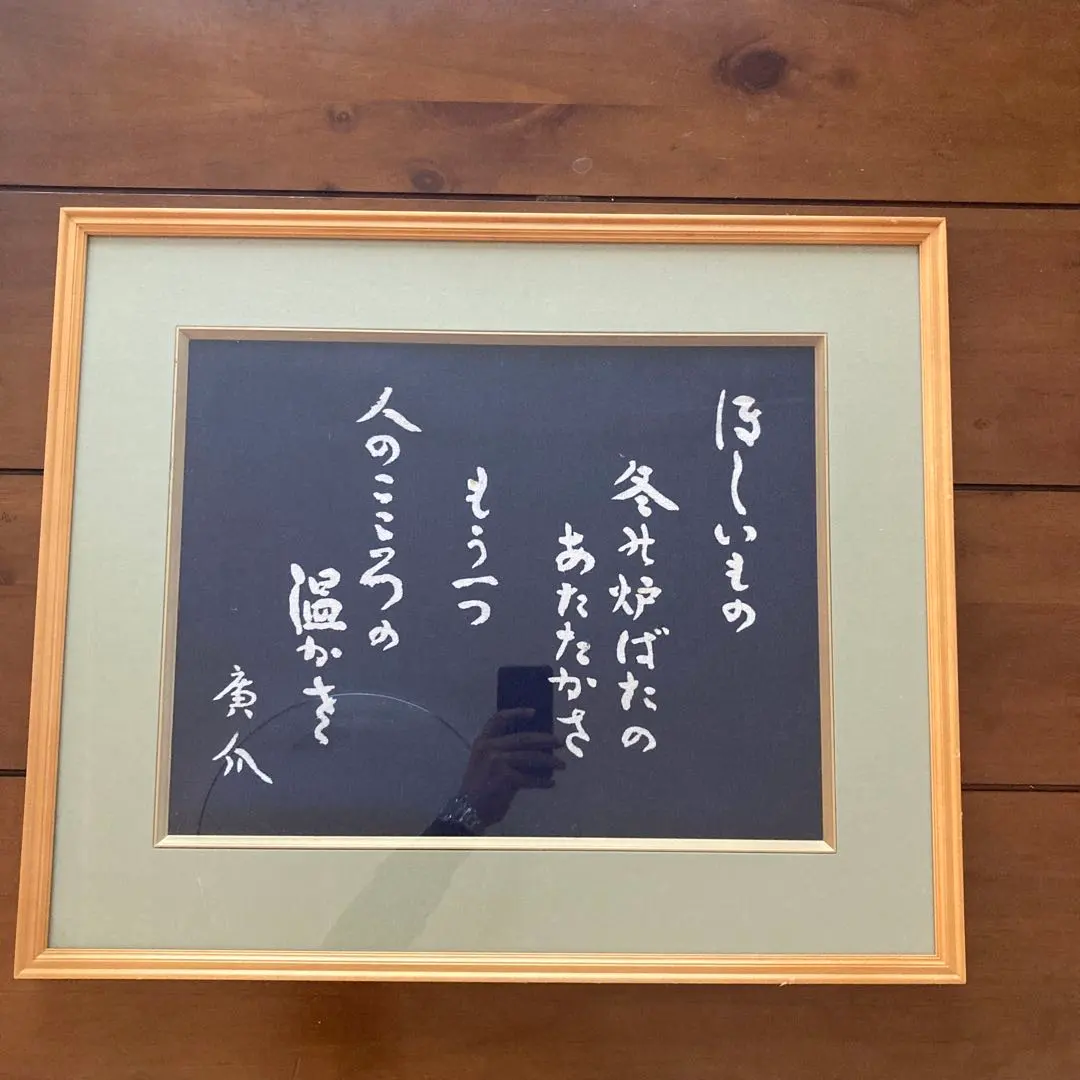 ほしいもの
冬の炉ばたの
あたたかさ
もう一つ
人のこころの
温かさ
廣爪